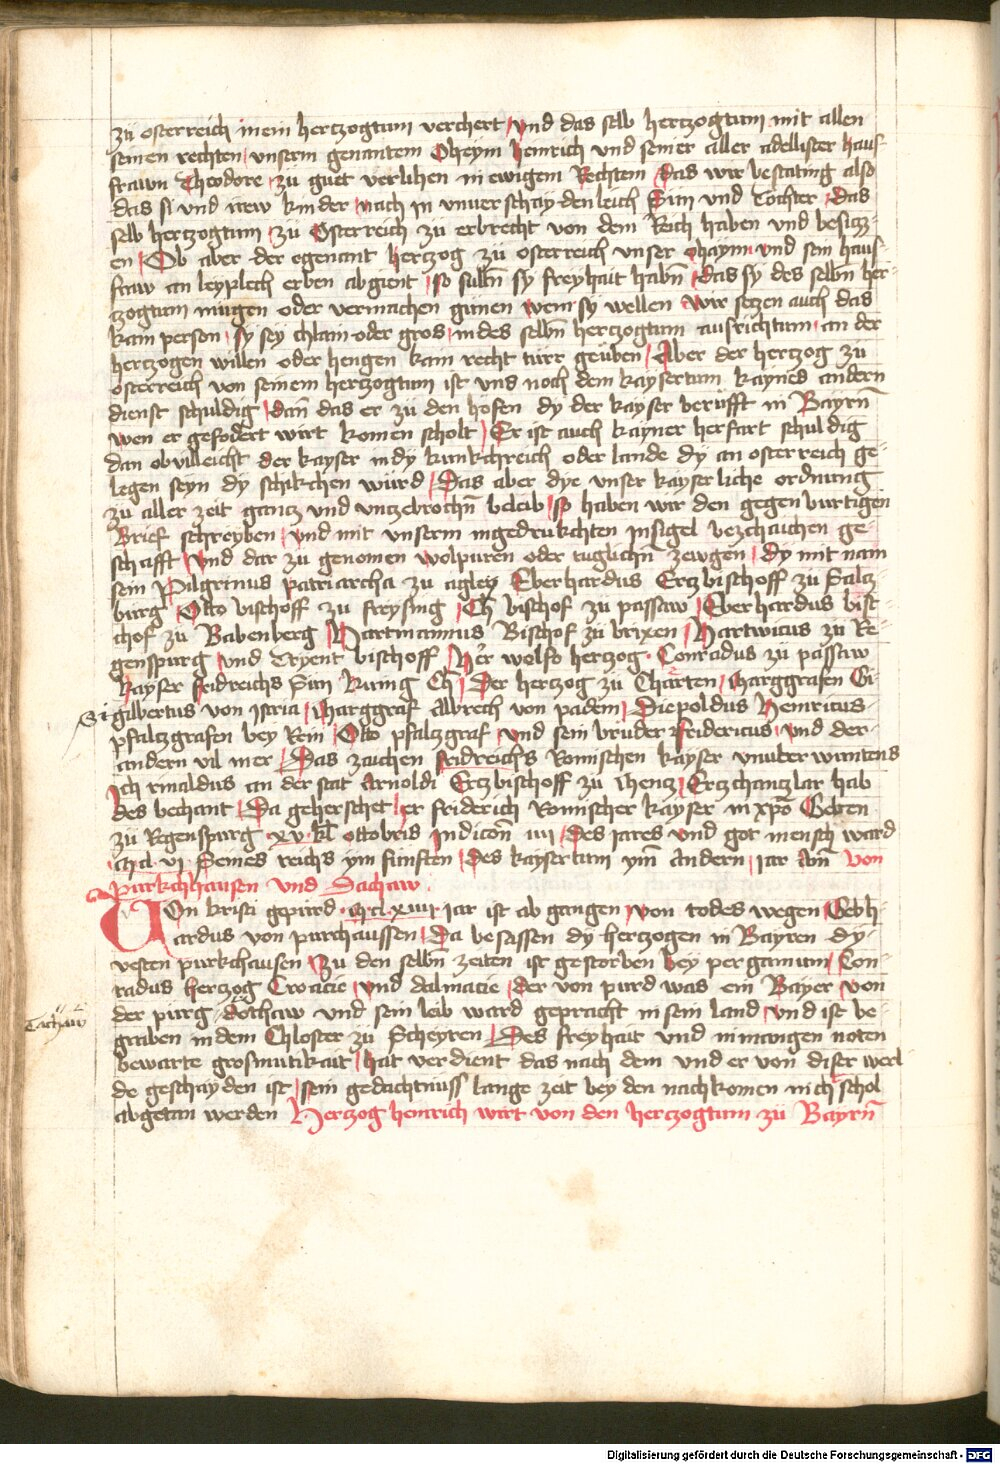 zu osterreich in ein hertzogtum verchert und das selb hertzogtum mit allen
seinen rechten unserm genantem Oheym heinrich und seiner aller adellister haus-
frawn Theodore zu guet verlihen in ewigem Rechten Das wir bestating also
das si und irew kinder nach in unverschaydenleich Sun und Tochter das
selb hertzogtum zu Osterreich zu erbrecht von dem Reich haben und besicz-
en Ob aber der egenant hertzog zu osterreich unser ohaym und sein haus-
fraw an leyplich erben abgient so sulln sy freyhait habn das sy des selbn her-
tzogtum mugen oder vermachen gunen wem sy wellen Wir setzen auch das
kain person sy sey chlain oder gros in des selbn hertzogtum ausrichtum an der
hertzogen willen oder hengen kain recht turr geuben Aber der hertzog zu
osterreich von seinem hertzogtum ist uns noch dem kaysertum kayned andern
dienst schuldig dan das er zu den hofen dy der kayser berufft in Bayrn
wen er gefodert wirt komen scholt Er ist auch kayner herfart schuldig
dan ob villeicht der kayser in dy kunkchreich oder lande dy an osterreich ge-
legen seyn dy schikchen wurd Das aber dye unser kayserliche ordnung
zu aller zeit gantz und unzebrochn beleib so haben wir den gegenburtigen
Brief schreyben und mit unserm ingedrukchten insigel bezchaichen ge-
schafft und dar zu genomen wolpuren oder tuglichn zewgen dy mit nam
sein Pilgrinus patriarcha zu agley Eberhardus Ertzbischoff zu Saltz-
burg Otto bischoff zu freysing Ch bischof zu passaw Eberhardus bist-
chof zu Babenberg Hartmannus Bischof zu brixen Hartwicus zu Re-
genspurg und Tryent bischoff Her wolfo hertzog Conradus zu passaw
kayser fridreichs Sun kunig Ch Der hertzog zu Chärten Marggrafen Gi
Gi gilbertus von Istria Marggraf Albrech von padem Diepoldus Heinricus
pfaltzgrafen bey Rein Otto pfaltzgraf und sein bruder fridericus und der
andern vil mer Das zaichen fridreichs Romischen kayser unuberwuntens
Ich rinaldus an der stat Arnoldi Ertzbischoff zu Mentz Ertzchantzlar hab
des bechant Da geherschet her friderich Romischer kayser in xpo Geben
zu Regenspurg xv kl ottobris Indicon iiii Des Jares und got mensch ward
Mcl vi Seines reichs ym funften Des kaysertum ym Andern iar Am von
purkchhausen und Dachaw
Von kristi gepurd Mcl xiiii Jar ist ab gangen von todes wegen Gebh-
ardus von purchaussen Da besassen dy hertzogen in Bayren dy
vesten purkchausen Zu den selbn zeiten ist gestorben bey pergamum Con-
radus hertzog Croatie und dalmatie der von purd was ein Bayer von
Tachaw
der purg dochaw und sein leib ward gepracht in sein land und ist be-
graben in dem Chloster zu Scheyren Des freyhait und in mangen noten
bewarte grosmutikait hat verdient das nach dem und er von diser werl
de geschayden ist sein gedachtnuss lange zeit bey den nachkomen nich schol
abgetan werden Hertzog heinrich wirt von den hertzogtum zu Bayrn
Digitalisierung gefördert durch die Deutsche Forschungsgemeinschaft - DFG